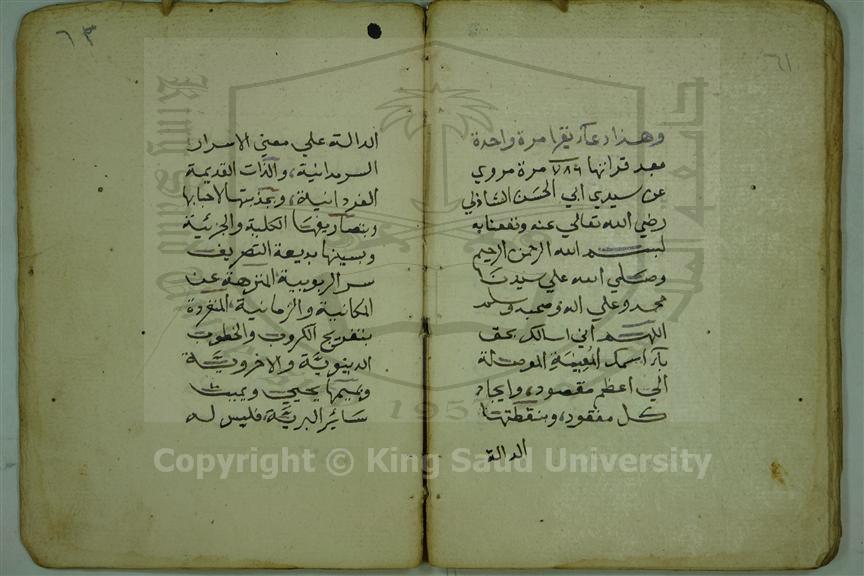 ٦١
وهذا دعاء يقرا مرة واحدة
بعد قرانها ٧٨٦ مرة مروي
عن سيدي ابي الحسن الشاذلي
رضي الله تعالي عنه ونفعنا به
بسم الله الرحمن الرحيم
وصلي الله علي سيدنا
محمد وعلي اله وصحبه وسلم
اللهم اني اسالك بحق
بآء اسمك المُعِينَةِ الموصلة
الي اعظم مقصود، وايجاد
كل مفقود، وبنقطتها
الدالة
الدالة علي معني الاسرار
السرمدانية، والذات القديمة
الفردانية، لاحبابها
وبتصاريفها الكلية والجزئية
وبسينها بديعة التصريف
سر الربوبية المنزهة عن
المكانية والزمانية المنفردة
بتفريج الكروب والخطوب
الدينوية والاخروية
وبميمها يحيي ويميت
سائر البرية، فليس له
King Saud University
جامعة
1957
Copyright © King Saud University